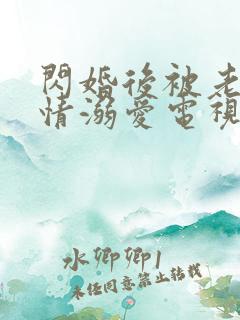 閃婚後被老
情溺愛電視
水卿卿1
未经同意禁止转载